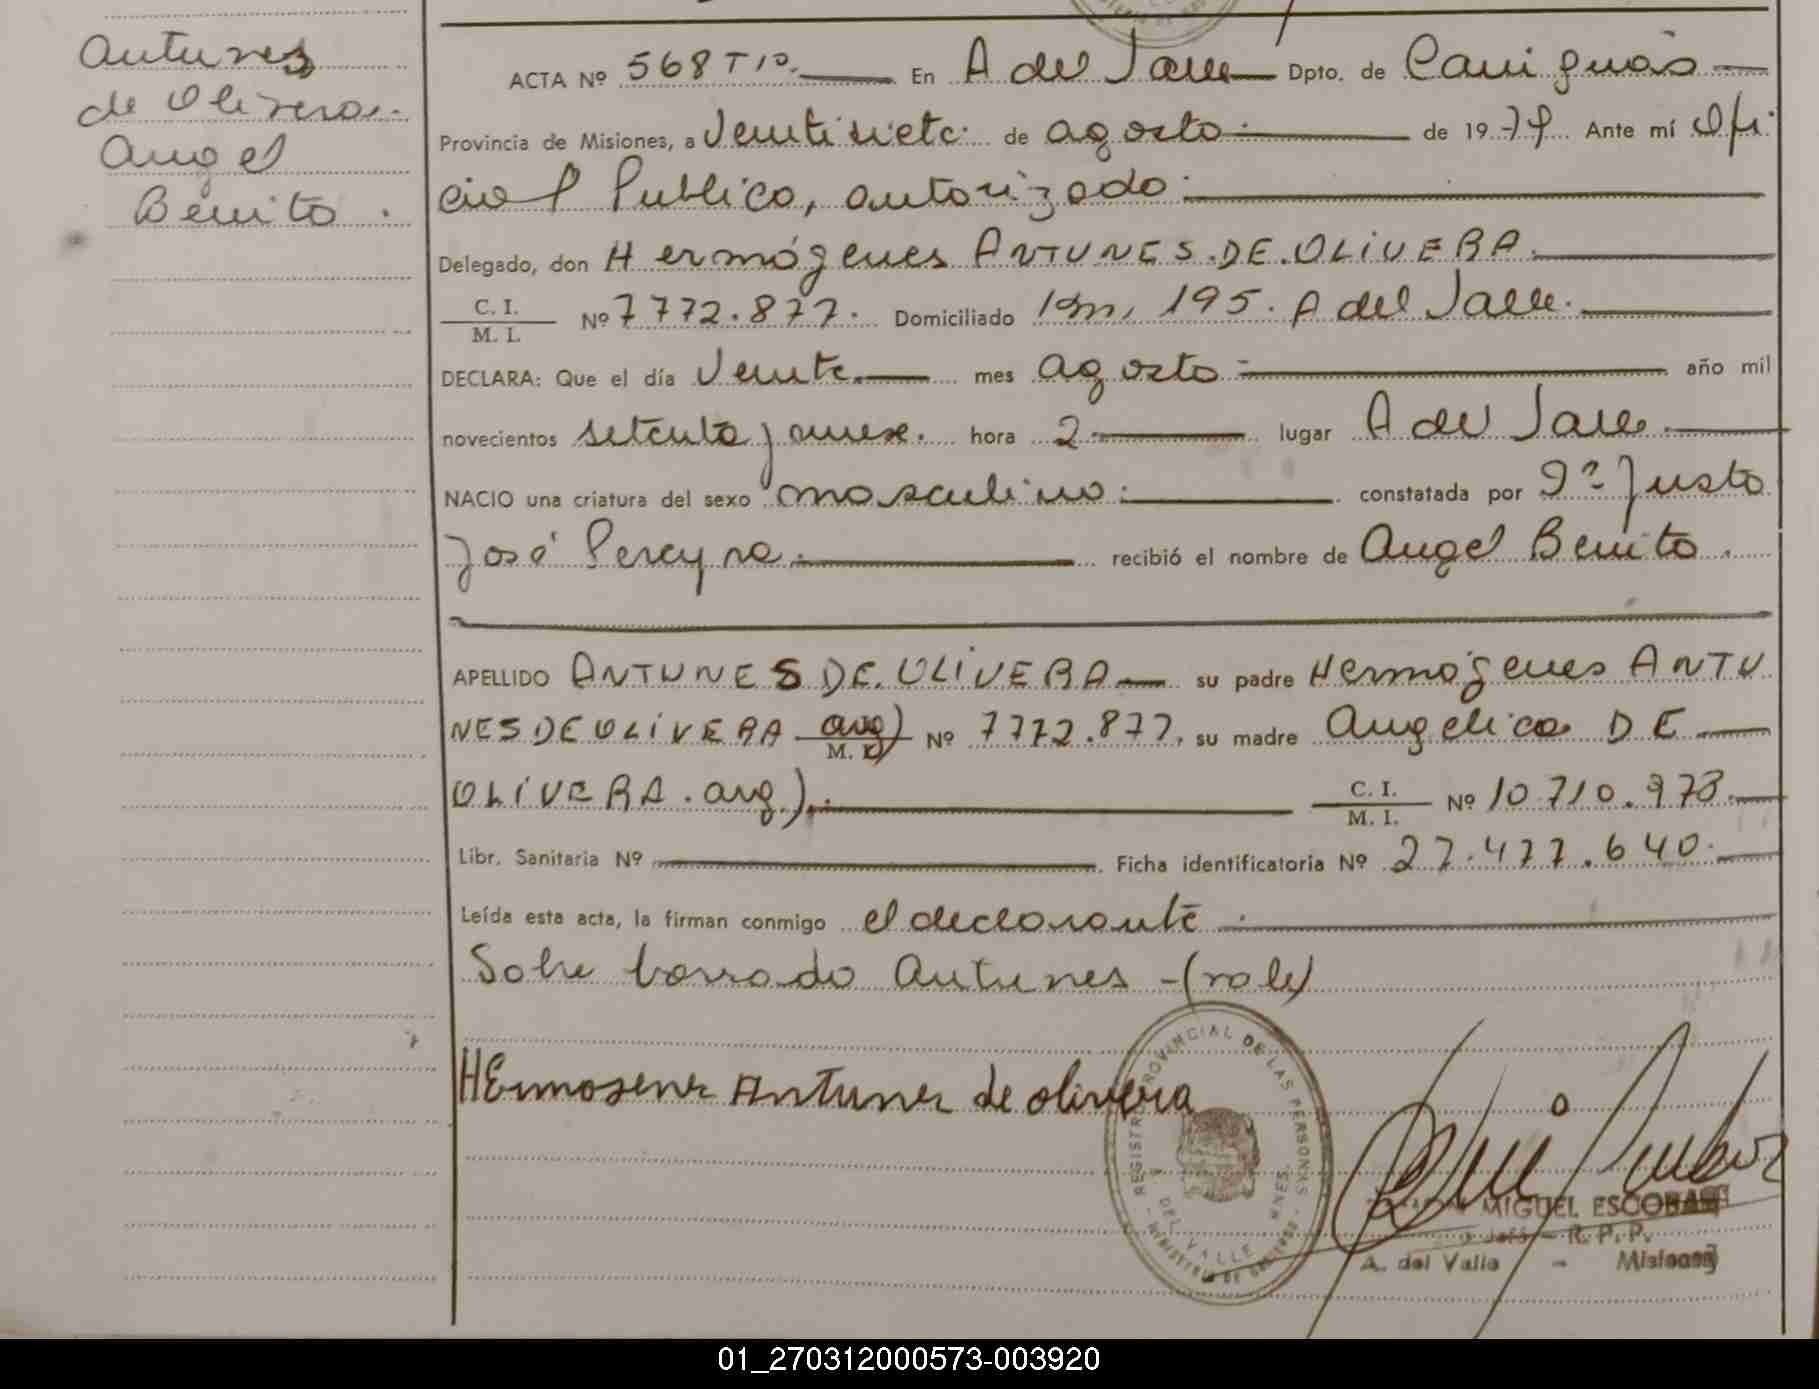 Antunes
de Olivera.
Angel
Benito.
ACTA Nº 568 Tº En A del Valle Dpto. de Cainguás
Provincia de Misiones, a Veintisiete de agosto de 1979 Ante mí Ofi
cial Publico, autorizado
Delegado, don Hermógenes ANTUNES.DE.OLIVERA.
C. I.
M. I. Nº 7772.877. Domiciliado Km, 195. A del Valle.
DECLARA: Que el día Veinte mes agosto año mil
novecientos setenta y nueve. hora 2 lugar A del Valle
NACIO una criatura del sexo masculino constatada por Justo
José Pereyra recibió el nombre de Angel Benito.
APELLIDO ANTUNES DE OLIVERA su padre Hermógenes ANTU
NES DE OLIVERA arg) M. I. Nº 7772.877, su madre Angelica DE
OLIVERA. arg) C. I.
M. I. Nº 10.710.973
Libr. Sanitaria Nº Ficha identificatoria Nº 27.477.640.
Leída esta acta, la firman conmigo el declarante
Sobre borrado Antunes -(vale)
HErmosenes Antunes de olivera
REGISTRO PROVINCIAL DE LAS PERSONAS
DEL VALLE MNES.
MINISTERIO DE GOBIERNO
MIGUEL ESCOBAR
Jefe - R. P. P.
A. del Valle - Misiones
01_270312000573-003920